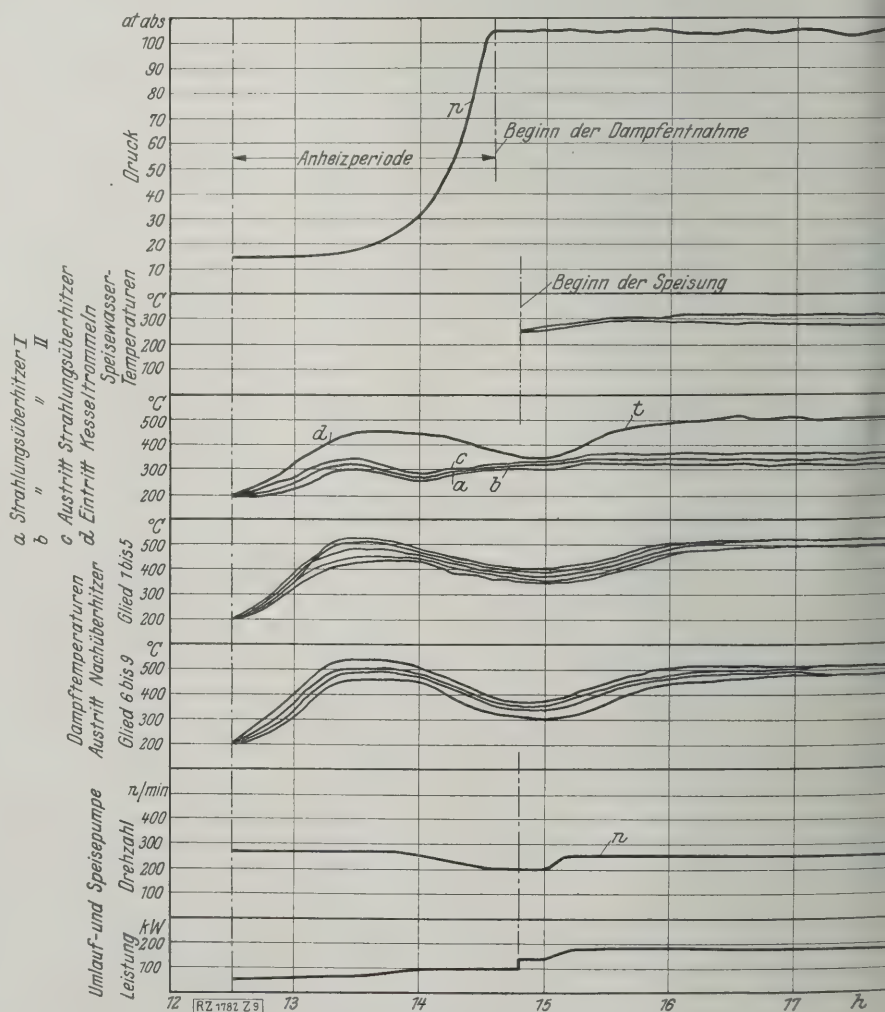 at abs
100
90
80
70
60
50
40
30
20
10
Druck
p
Anheizperiode
Beginn der Dampfentnahme
Beginn der Speisung
°C
300
200
100
Speisewasser-
Temperaturen
a Strahlungsüberhitzer I
b " " II
c Austritt Strahlungsüberhitzer
d Eintritt Kesseltrommeln
°C
500
400
300
200
d
t
c
a
b
°C
500
400
300
200
Dampftemperaturen
Austritt Nachüberhitzer
Glied 1 bis 5
°C
500
400
300
200
Glied 6 bis 9
n/min
400
300
200
100
Umlauf- und Speisepumpe
Drehzahl
n
kW
200
100
Leistung
12 13 14 15 16 17 h
RZ 1782 Z 9